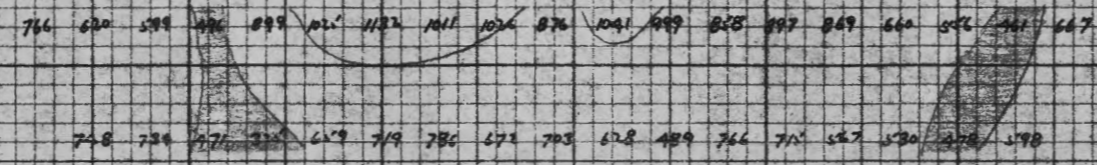 766 620 599 496 899 1025 1132 1011 1026 876 1041 999 858 897 869 660 556 461 667
748 734 471 659 719 786 672 703 628 489 766 715 567 530 478 598